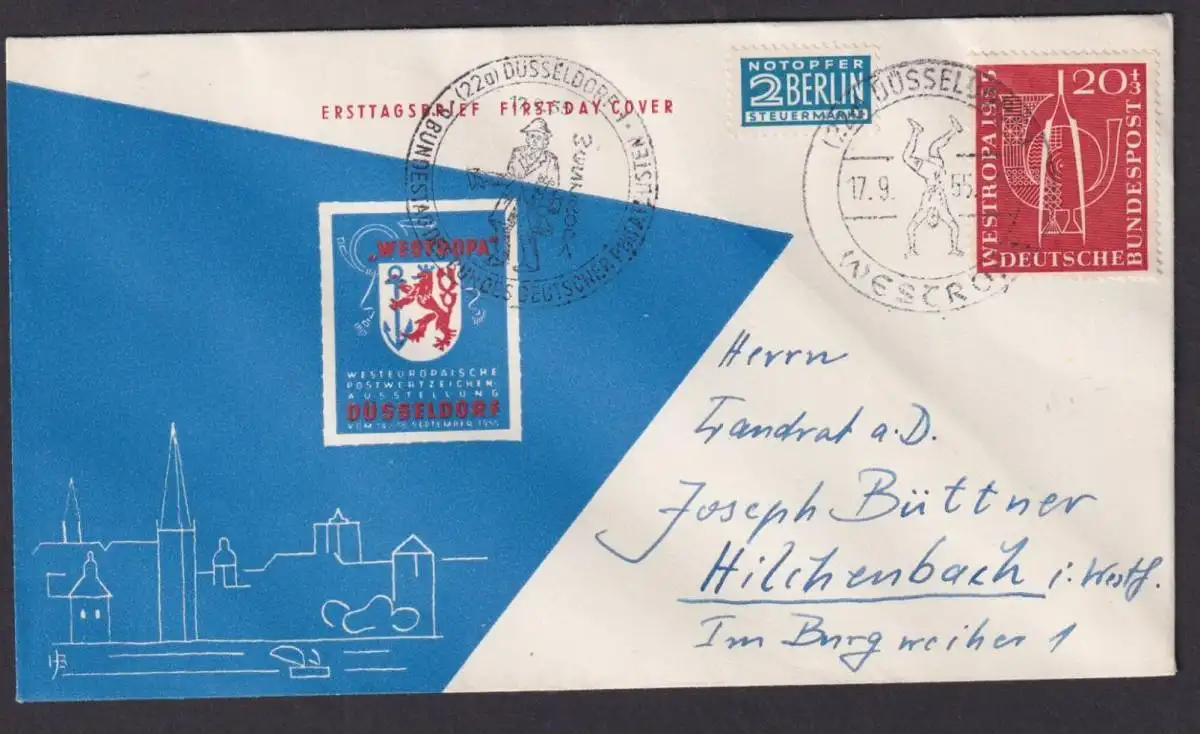 ERSTTAGSBRIEF FIRST DAY COVER
(22a) DÜSSELDORF
BUNDESTAG DES BUNDES DEUTSCHER PHILATELISTEN
NOTOPFER
2 BERLIN
STEUERMARKE
DÜSSELDORF
17.9. 55
WESTROPA
20+3
WESTROPA 1955
DEUTSCHE
BUNDESPOST
"WESTROPA"
WESTEUROPÄISCHE
POSTWERTZEICHEN-
AUSSTELLUNG
DÜSSELDORF
SEPTEMBER 1955
Herrn
Landrat a.D.
Joseph Büttner
Hilchenbach i. Westf.
Im Burgweiher 1